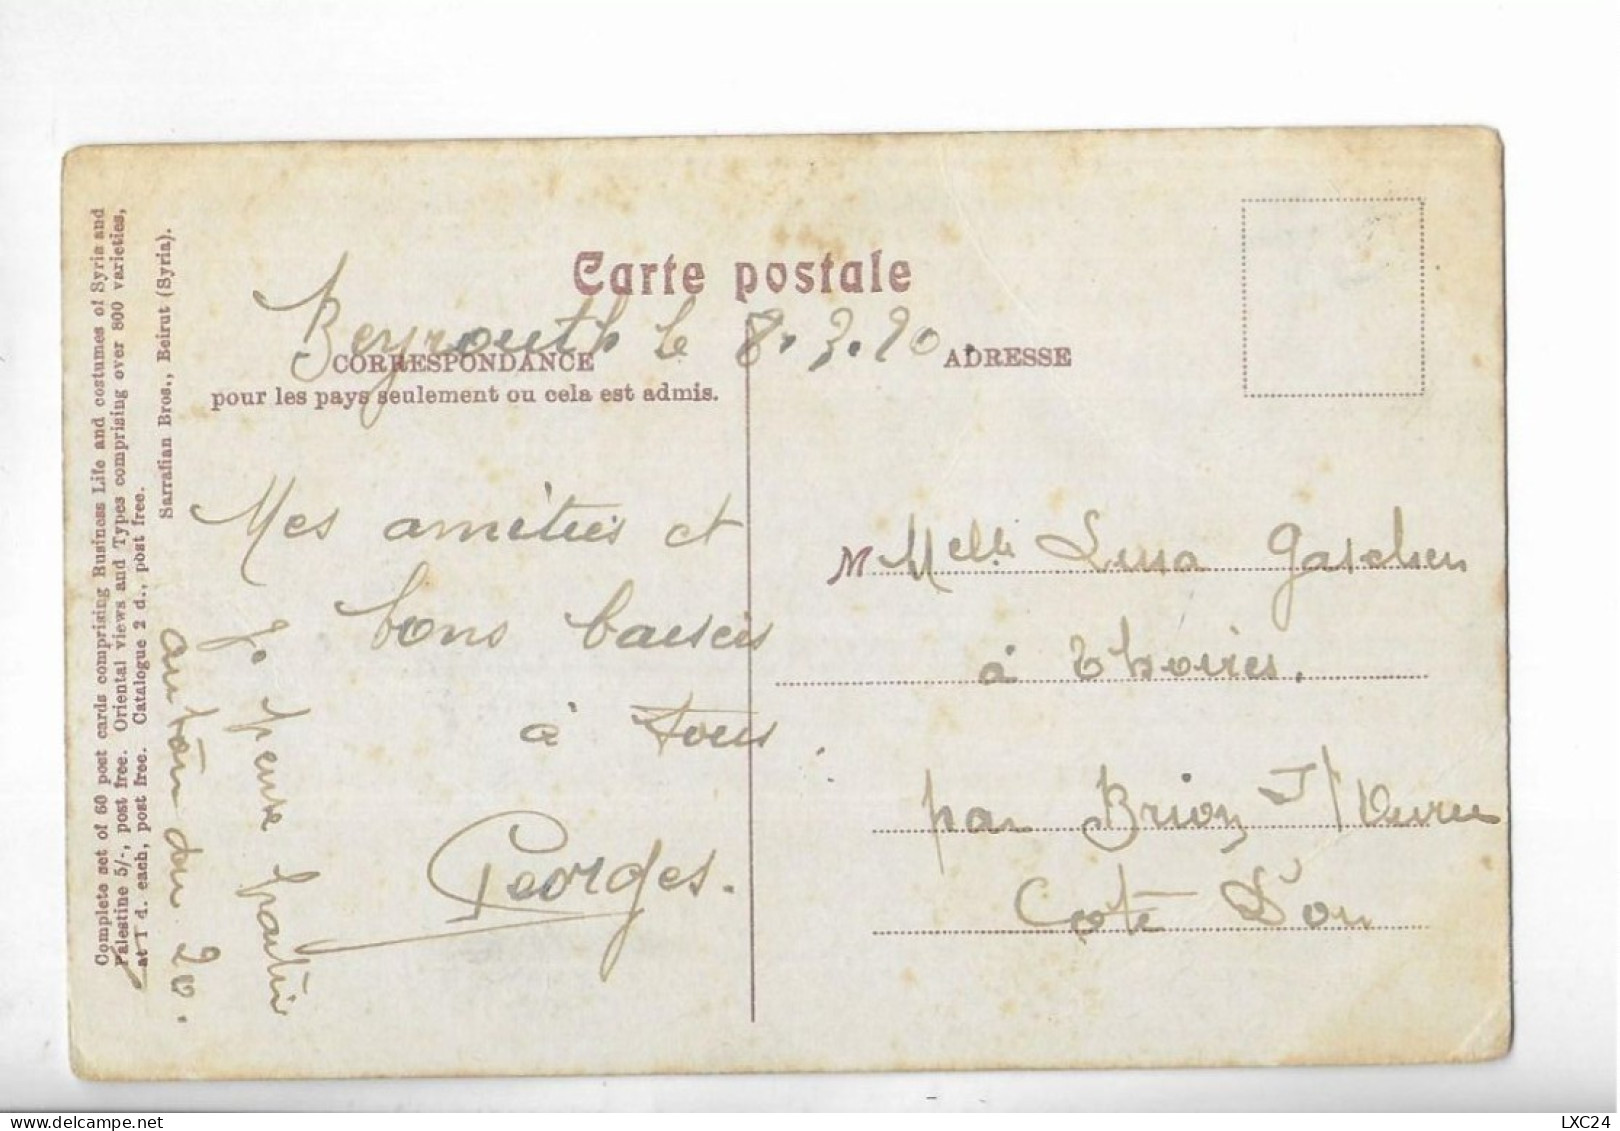 Carte postale
Beyrouth le 8.3.20
CORRESPONDANCE
pour les pays seulement ou cela est admis.
ADRESSE
Mes amitiés et
bons baisers
à tous.
Georges.
Je pense partir
autour du 20.
M Melle Lina
à Thoires.
par Brion s/ Ource
Cote D'or
Complete set of 60 post cards comprising Business Life and costumes of Syria and
Palestine 5/-, post free. Oriental views and Types comprising over 800 varieties,
at 1 d. each, post free. Catalogue 2 d., post free.
Sarrafian Bros., Beirut (Syria).
delcampe.net
LXC24